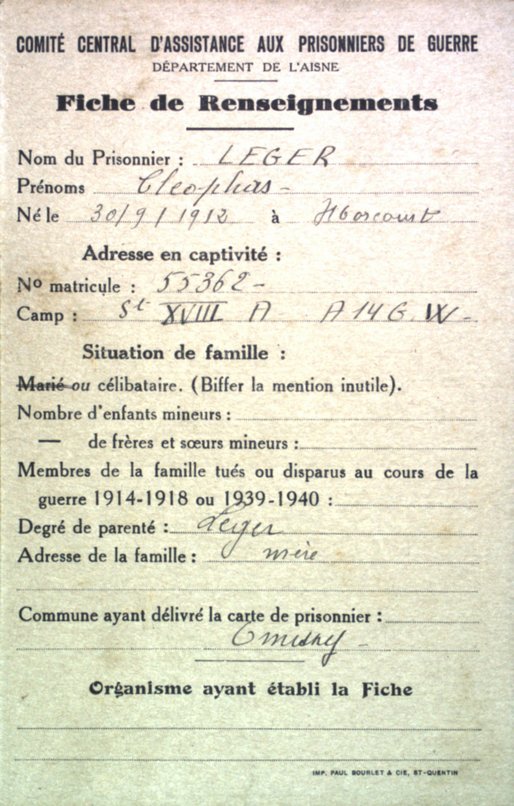 COMITÉ CENTRAL D'ASSISTANCE AUX PRISONNIERS DE GUERRE
DÉPARTEMENT DE L'AISNE
Fiche de Renseignements
Nom du Prisonnier : LEGER
Prénoms Cleophas -
Né le 30/9/1912 à
Adresse en captivité :
No matricule : 55362 -
Camp : St XVIII A A 14 G. W -
Situation de famille :
Marié ou célibataire. (Biffer la mention inutile).
Nombre d'enfants mineurs :
— de frères et sœurs mineurs :
Membres de la famille tués ou disparus au cours de la
guerre 1914-1918 ou 1939-1940 :
Degré de parenté : Leger
Adresse de la famille : mère
Commune ayant délivré la carte de prisonnier :
Omissy -
Organisme ayant établi la Fiche
IMP. PAUL BOURLET & CIE, ST-QUENTIN